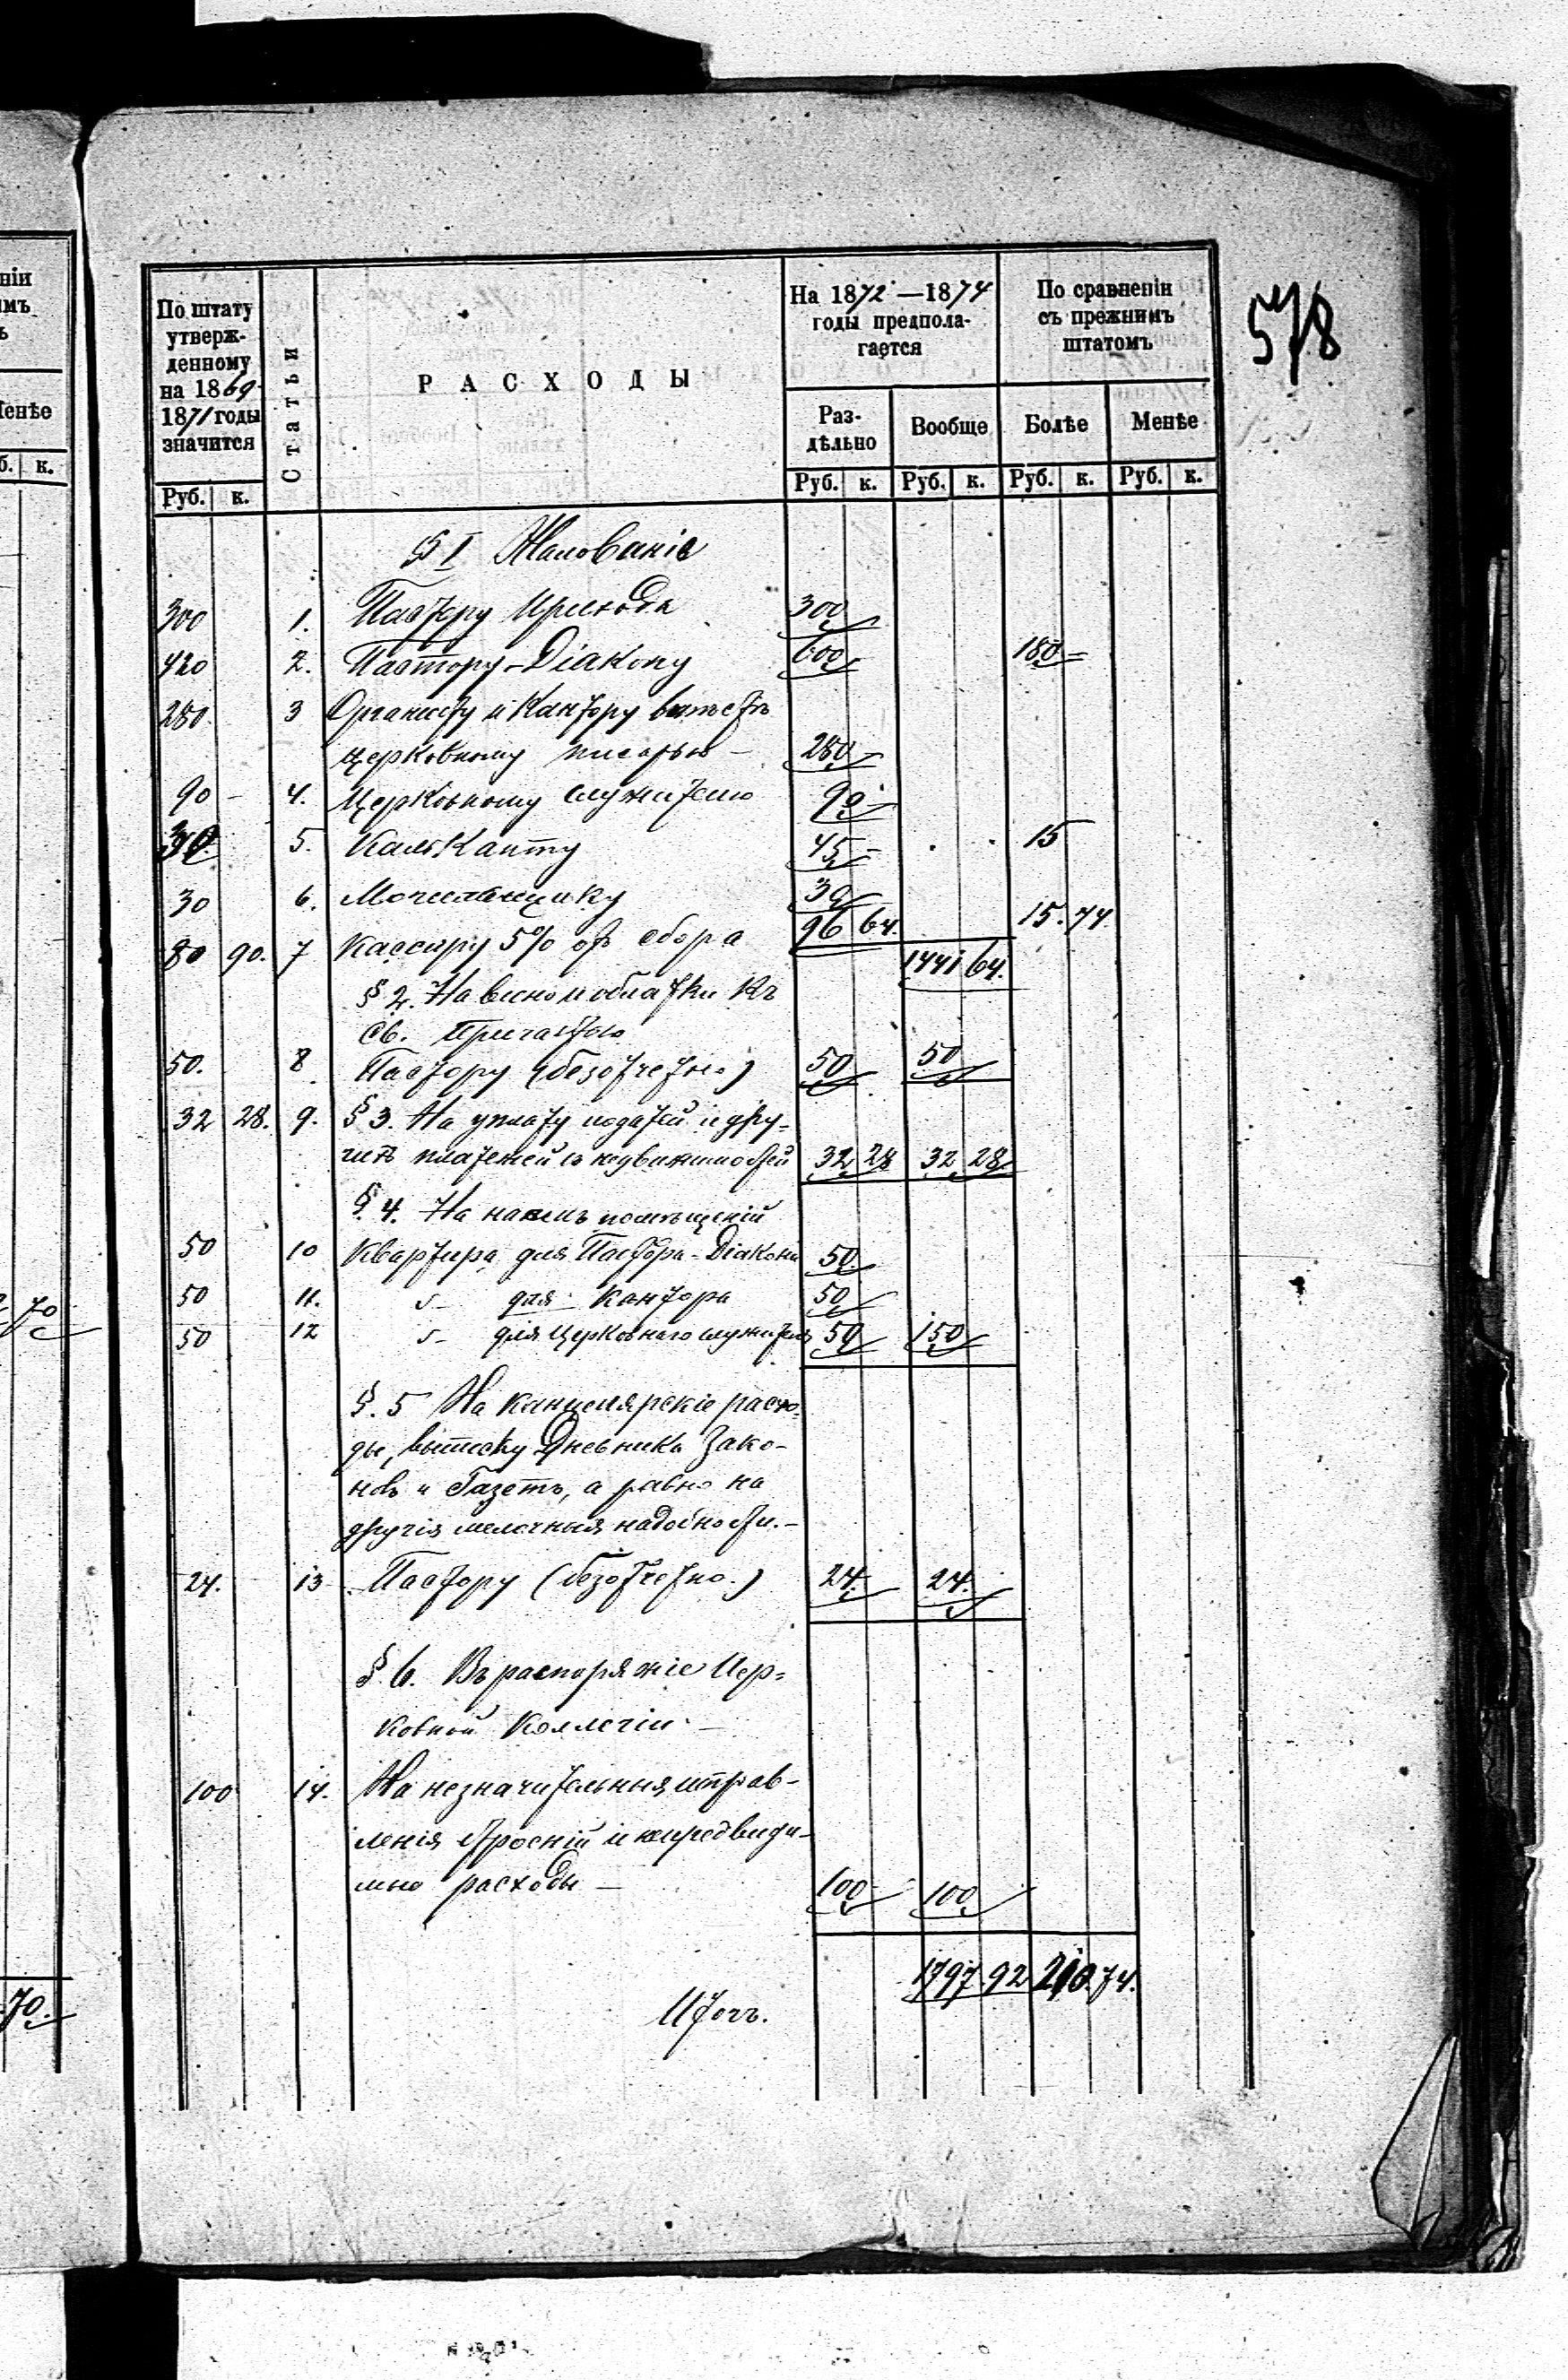 578
ніи
имъ
ъ
Менѣе
б. к.
70
70.
По штату утвержденному на 1869-1871 годы значится
Статьи
РАСХОДЫ
На 1872 —1874 годы предполагается
По сравненіи съ прежнимъ штатомъ
Раздѣльно Вообще Болѣе Менѣе
Руб. к. Руб. к. Руб. к. Руб. к. Руб. к.
§ I Жалованіе
300 1. Пастору Прихода 300
420 2. Пастору-Діакону 600 180 –
280. 3 Органисту и Кантору вмѣстѣ
церковному писарью – 280 –
90 – 4. Церковному служителю 90 –
30. 5. Кальканту 45 – 15
30 6. Могильщику 30
80 90. 7 Кассиру 5% отъ сбора 96 64. 15. 74.
1441 64.
§ 2. На вино и облатки къ
св. Причастью
50. 8 Пастору (безотчетно) 50 50
32 28. 9. § 3. На уплату податей и дру-
гихъ платежей съ недвижимостей 32 28 32 28
§ 4. На наемъ помѣщеній
50 10 Квартира для Пастора-Діакона 50.
50 11. для Кантора 50
50 12 для Церковнаго служителя 50 150
§. 5 На канцелярскіе расхо-
ды, выписку Дневника Зако-
новъ и Газетъ, а равно на
другія мелочныя надобности. –
24. 13 Пастору (безотчетно.) 24. 24.
§. 6. Въ распоряжіе Цер-
ковной Коллегіи –
100 14. На незначительныя исправ-
ленія строеній и непредвиди-
мые расходы – 100 – 100
1797 92 210. 74.
Итогъ.